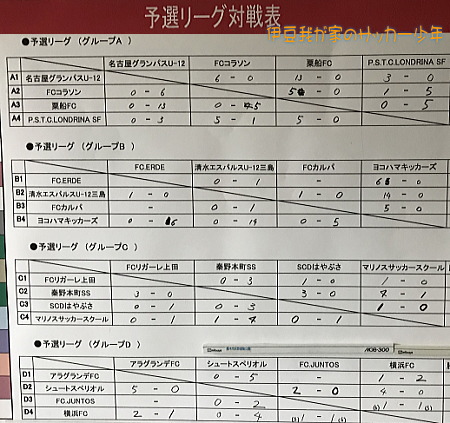 予選リーグ対戦表
伊豆我が家のサッカー少年
●予選リーグ（グループA）
名古屋グランパスU-12 FCコラソン 粟船FC P.S.T.C.LONDRINA SF
A1 名古屋グランパスU-12 6 - 0 13 - 0 3 - 0
A2 FCコラソン 0 - 6 5 - 0 1 - 5
A3 粟船FC 0 - 13 0 - 5 0 - 5
A4 P.S.T.C.LONDRINA SF 0 - 3 5 - 1 5 - 0
●予選リーグ（グループB）
FC.ERDE 清水エスパルスU-12三島 FCカルパ ヨコハマキッカーズ
B1 FC.ERDE 0 - 1 - 6 - 0
B2 清水エスパルスU-12三島 1 - 0 1 - 0 14 - 0
B3 FCカルパ - 0 - 1 5 - 0
B4 ヨコハマキッカーズ 0 - 6 0 - 14 0 - 5
●予選リーグ（グループC）
FCリガーレ上田 秦野本町SS SCDはやぶさ マリノスサッカースクール
C1 FCリガーレ上田 0 - 3 1 - 0 1 - 0
C2 秦野本町SS 3 - 0 3 - 0 4 - 1
C3 SCDはやぶさ 0 - 1 0 - 3 1 - 0
C4 マリノスサッカースクール 0 - 1 1 - 4 0 - 1
●予選リーグ（グループD）
アラグランデFC シュートスペリオル FC.JUNTOS 横浜FC
D1 アラグランデFC 0 - 5 - 1 - 2
D2 シュートスペリオル 5 - 0 2 - 0 4 - 0
D3 FC.JUNTOS - 0 - 2 1 - 1
D4 横浜FC 2 - 1 0 - 4 1 - 1